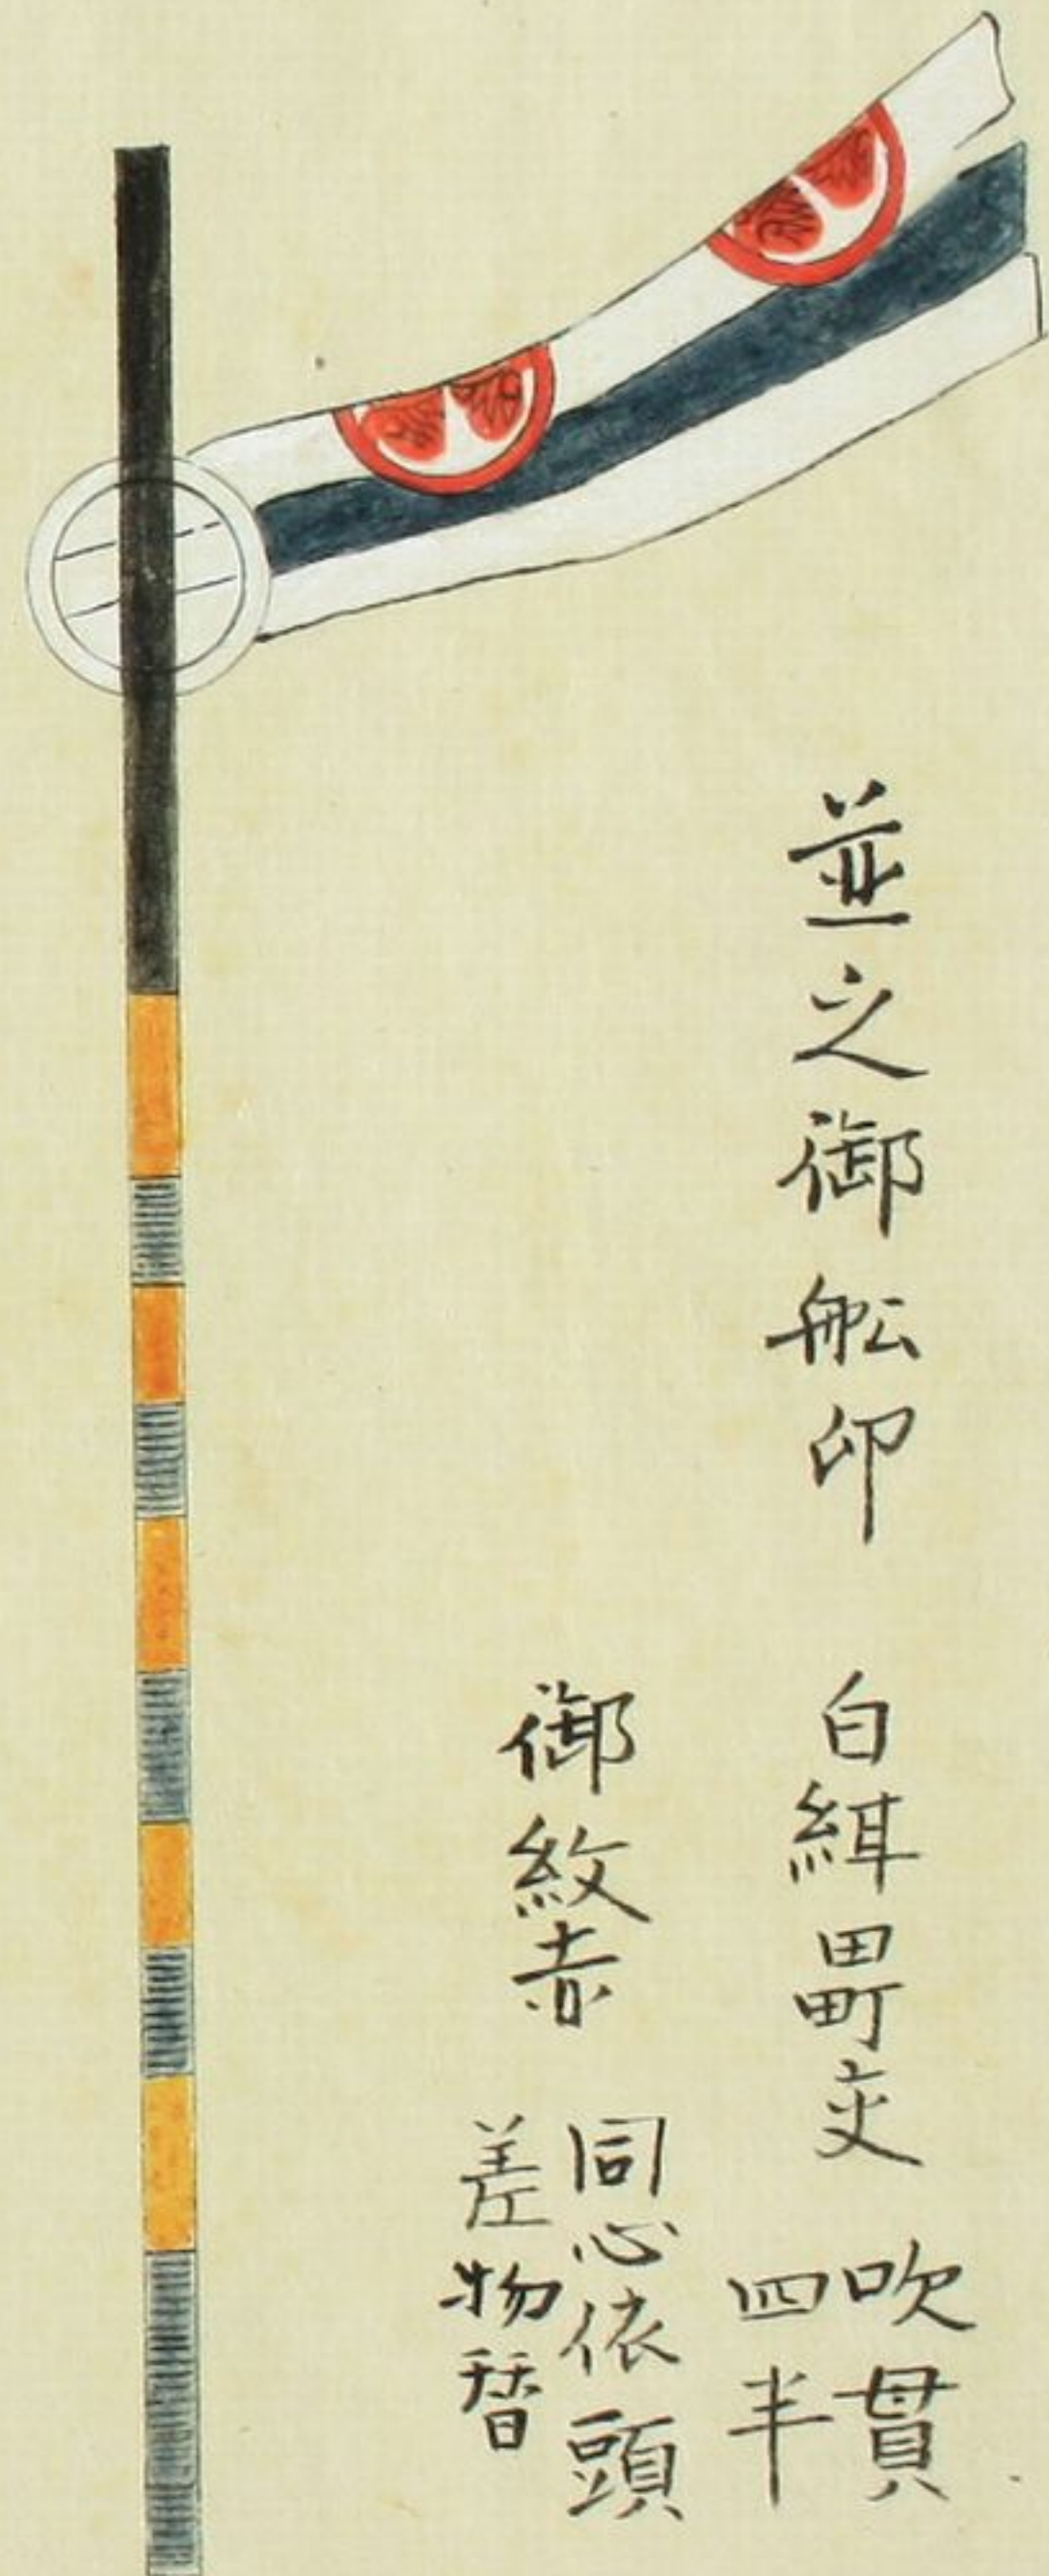 並之御舩印 白交
吹貫
四半
御紋赤
同心依頭
差物替